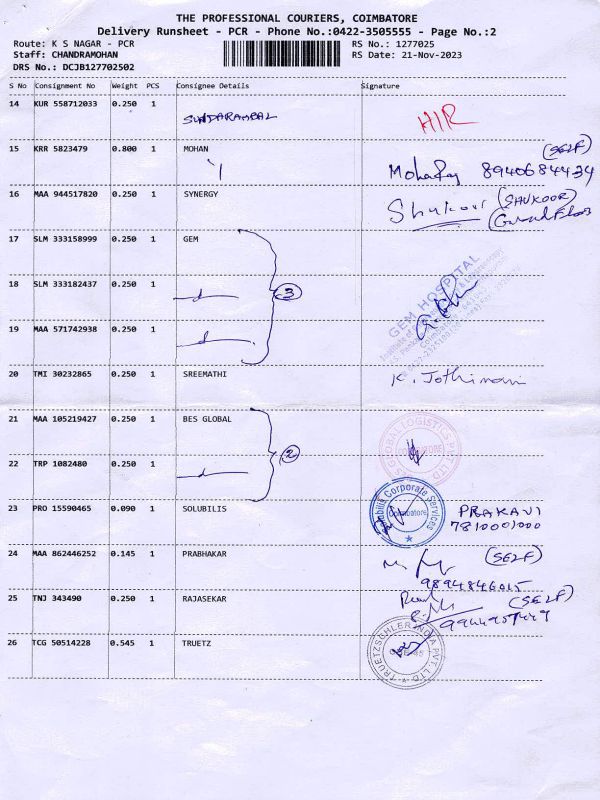 THE PROFESSIONAL COURIERS, COIMBATORE
Delivery Runsheet - PCR - Phone No.:0422-3505555 - Page No.:2
Route: K S NAGAR - PCR RS No.: 1277025
Staff: CHANDRAMOHAN RS Date: 21-Nov-2023
DRS No.: DCJB127702502
S No Consignment No Weight PCS Consignee Details Signature
14 KUR 558712033 0.250 1 SUNDARAMBAL HIR
15 KRR 5823479 0.800 1 MOHAN (SELF)
8940684434
16 MAA 944517820 0.250 1 SYNERGY Shukoor (SHUKOOR)
17 SLM 333158999 0.250 1 GEM
GEM HOSPITAL
18 SLM 333182437 0.250 1 3
19 MAA 571742938 0.250 1
20 TMI 30232865 0.250 1 SREEMATHI K. Jothimani
21 MAA 105219427 0.250 1 BES GLOBAL BES GLOBAL LOGISTICS PVT. LTD COIMBATORE
22 TRP 1082480 0.250 1 2
23 PRO 15590465 0.090 1 SOLUBILIS Solubilis Corporate Services Coimbatore PRAKAVI
7810001000
24 MAA 862446252 0.145 1 PRABHAKAR (SELF)
9894846015
25 TNJ 343490 0.250 1 RAJASEKAR (SELF)
26 TCG 50514228 0.545 1 TRUETZ TRUETZSCHLER INDIA PVT. LTD